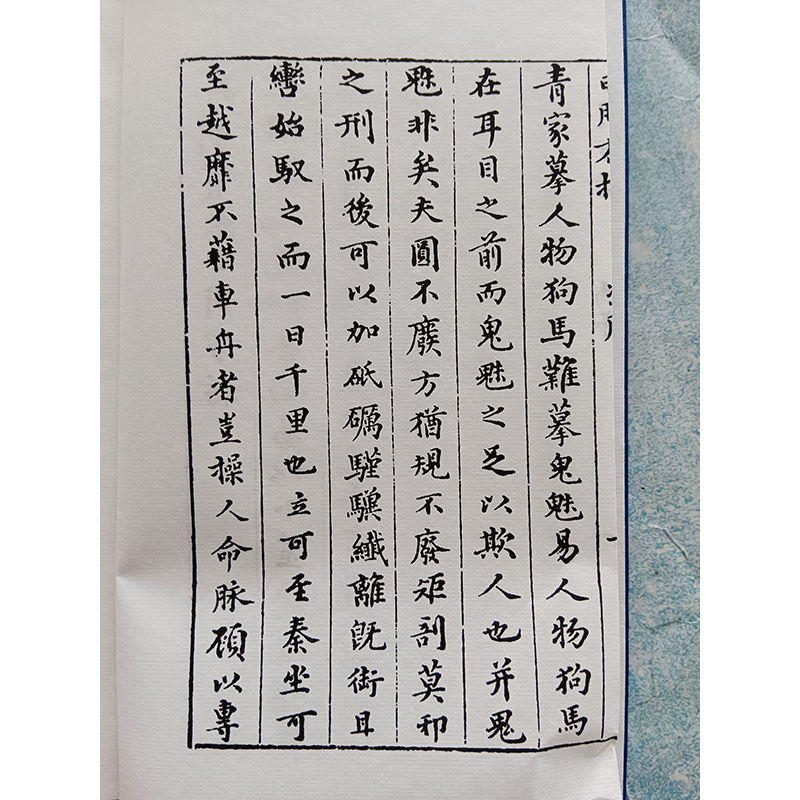 青家摹人物狗馬難摹鬼魅易人物狗馬
在耳目之前而鬼魅之足以欺人也并鬼
魅非矣夫圓不廢方猶規不廢矩剖莫
之刑而後可以加砥礪騹驥纖離既衘且
轡始馭之而一日千里也立可至秦坐可
至越靡不藉車舟者豈操人命脉顧以專